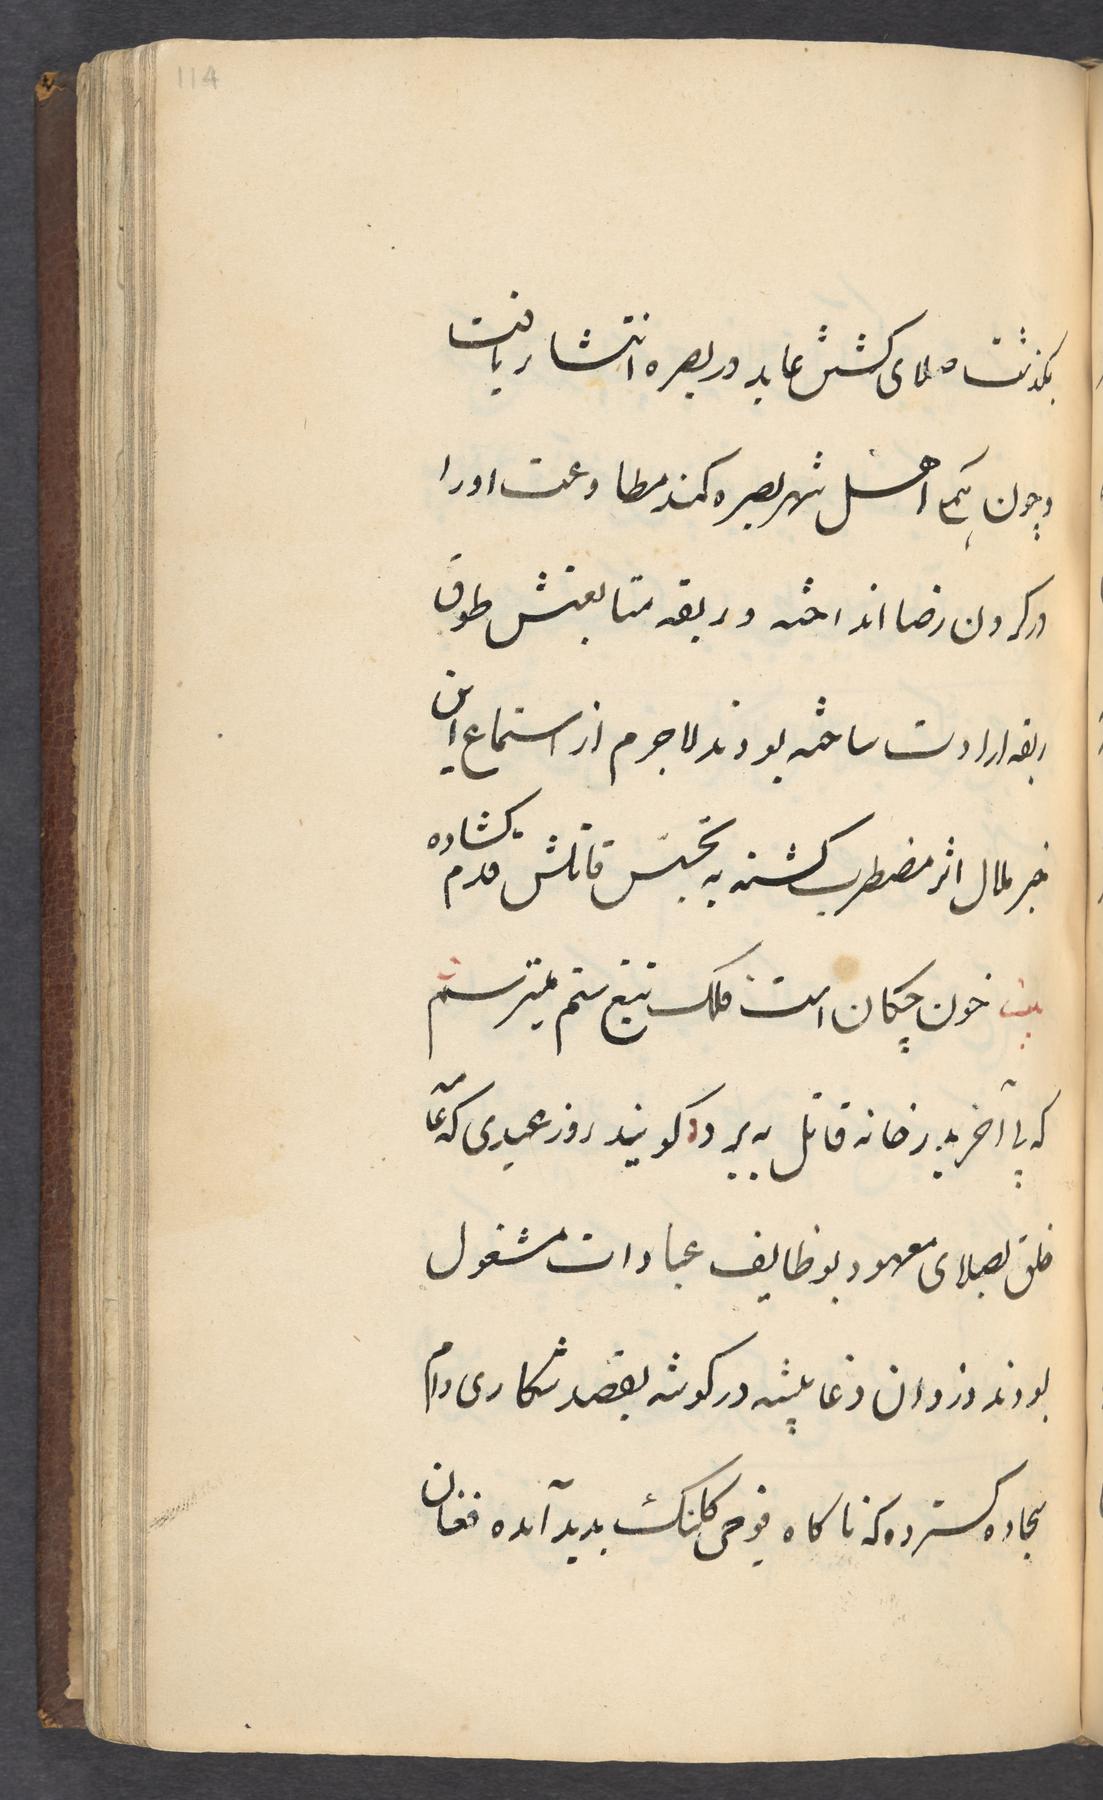 114
بگذشت صلای کشش عابد در بصره انتشار یافت
و چون همه اهل شهر بصره کمند مطاوعت او را
در کردن رضا انداخته و ربقه متابعتش طوق
ربقه ارادت ساخته بودند لاجرم از استماع این
خبر ملال اثر مضطرب کشته به تجسّس قاتلش قدم کشاده
بیت خون چکان است فلک تیغ ستم میترسم
که پی آخر بدر خانه قاتل ببرد کویند روز عیدی که عامه
خلق بصلای معهود بوظایف عبادات مشغول
بودند دزدان دغا پیشه در کوشه بقصد شکاری دام
سجاده کسترده که ناکاه فوجی کلنک بدید آمده فغان